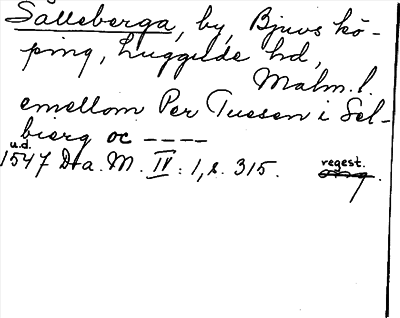 Sälleberga, by, Bjuvs kö-
ping, Luggude hd,
Malm. l.
emellom Per Tuesen i Sel-
bierg oc ----
u.d.
1547 Dra. M. IV: 1, s. 315. regest.
orig.